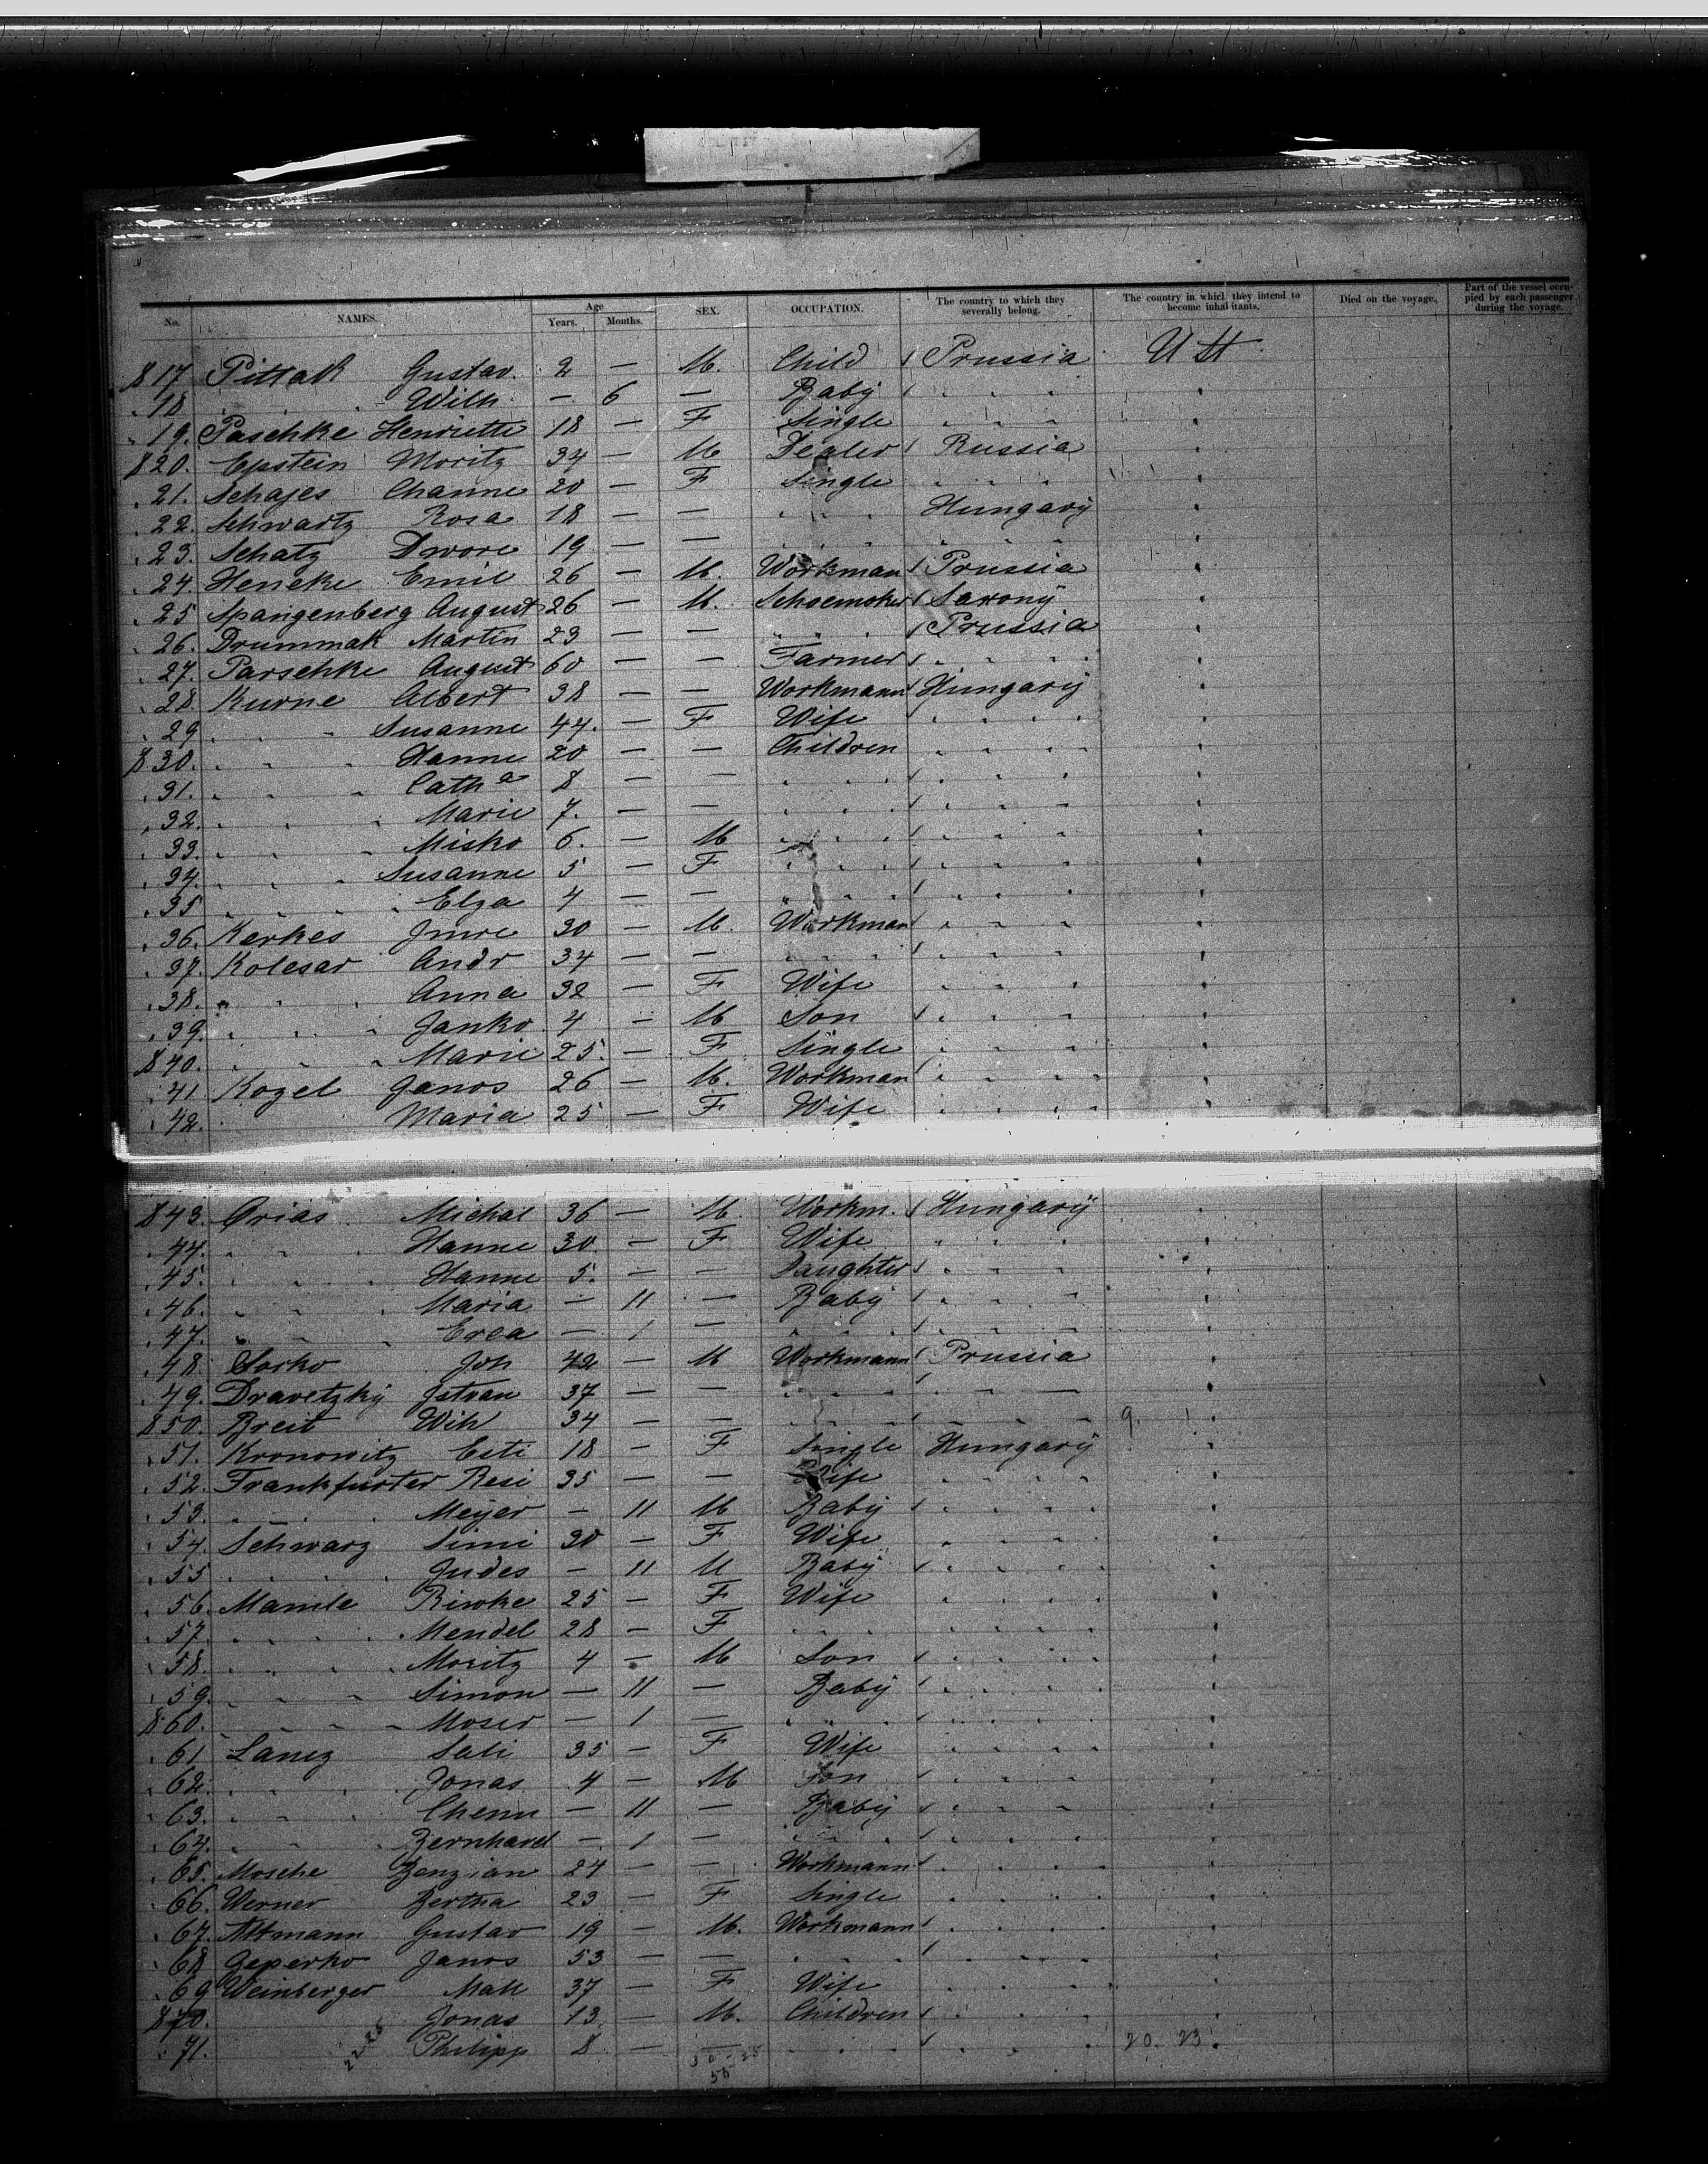 No. NAMES. Age Years. Months. SEX. OCCUPATION. The country to which they severally belong. The country in which they intend to become inhabitants. Died on the voyage. Part of the vessel occupied by each passenger during the voyage.
817 Pittak Gustav. 2 — M. Child Prussia U St
18 " " " Wilh. — 6 — Baby " " "
19. Paschke Henriette 18 — F Single " " "
820. Epstein Moritz 34 — M Dealer Russia
21. Schajes Channe 20 — F Single " " "
22. Schwartz Rosa 18 — — " " " Hungary
23. Schatz Dwore 19 — — " " " " " "
24. Heneke Emil 26 — M. Workman Prussia
25 Spangenberg August 26 — M. Schoemaker Saxony
26. Drummak Martin 23 — — " " " Prussia
27. Parschke August 60 — — Farmer " " "
28. Kurne Albert 38 — — Workmann Hungary
29 " " " Susanne 44. — F Wife " " "
830. " " " Hanne 20 — — Children " " "
31. " " " Cath a 8 — — " " " " " "
32. " " " Marie 7. — — " " " " " "
33. " " " Misko 6. — M " " " " " "
34. " " " Susanne 5 — F " " " " " "
35 " " " Elza 4 — — " " " " " "
36. Kerkes Imre 30 — M. Workman " " "
37. Kolesar Andr 34 — — " " " " " "
38. " " " Anna 32 — F Wife " " "
39. " " " Janko 4 — M Son " " "
840. " " " Marie 25. — F Single " " "
41 Kozel Janos 26 — M. Workman " " "
42. " Maria 25 — F Wife " " "
843. Orias Michal 36 — M Workm. Hungary
44. " " " Hanne 30. — F Wife " " "
45. " " " Hanne 5. — — Daughter " " "
46. " " " Maria — 11 — Baby " " "
47. " " " — 1 — " " " " " "
48. Sorko Joh 42 — M Workmann Prussia
49. Dravetzky Istvan 37 — — " " " " " "
850. Breit Wilh 34 — — " " " " " " 9.
51. Kronowitz Esti 18 — F Single Hungary
52. Frankfurter Resi 35 — — Wife " " "
53. " " " Meyer — 11 M Baby " " "
54. Schwarz Simi 30 — F Wife " " "
55 " " " Judes — 11 M Baby " " "
56. Mamle Riwke 25 — F Wife " " "
57. " " " Mendel 28 — F " " " " " "
58. " " " Moritz 4 — M Son " " "
59. " " " Simon — 11 — Baby " " "
860. " " " Moser — 1 — " " " " " "
61 Sali 35 — F Wife " " "
62. " " " Jonas 4 — M Son " " "
63. " " " — 11 — Baby " " "
64. " " " Bernhard — 1 — " " " " " "
65. Mosche Benzian 24 — — Workmann " " "
66. Werner Bertha 23 — F Single " " "
67. Altmann Gustav 19 — M. Workmann " " "
68 Janos 53 — — " " " " " "
69 Weinberger Mall 37 — F Wife " " "
870. Jonas 13. — M. Children " " "
71. Philipp 8 — — " " " " " " 20. 23.